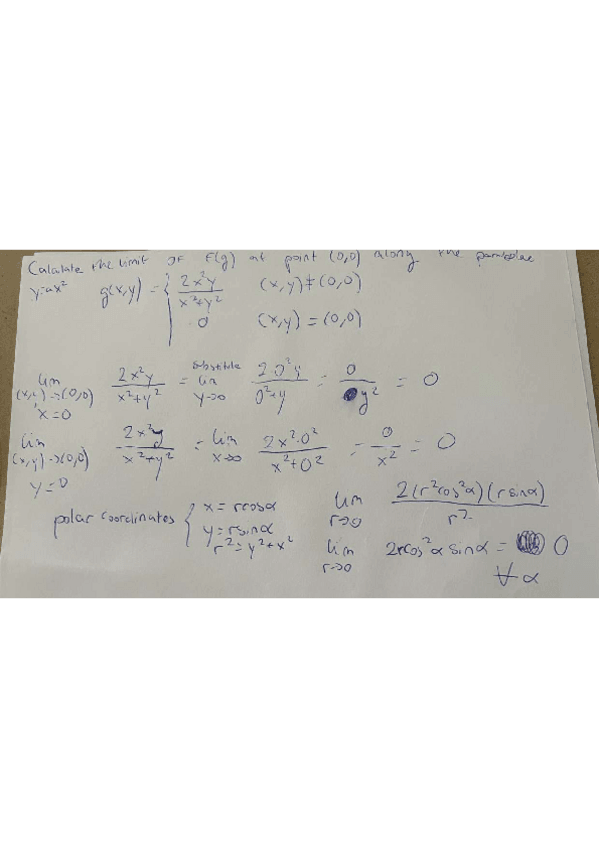 Calculate the limit of F(g) at point (0,0) along the parabolas
y=ax² g(x,y) = { 2x²y / x²+y² (x,y)≠(0,0)
0 (x,y)=(0,0)
lim (x,y)→(0,0) x=0 2x²y / x²+y² = substitute lim y→0 2·0²y / 0²+y = 0 / y² = 0
lim (x,y)→(0,0) y=0 2x²y / x²+y² = lim x→0 2x²·0² / x²+0² = 0 / x² = 0
polar coordinates { x=rcosα
y=rsinα
r²=y²+x²
lim r→0 2(r²cos²α)(rsinα) / r²
lim r→0 2rcos²α sinα = 0
∀α